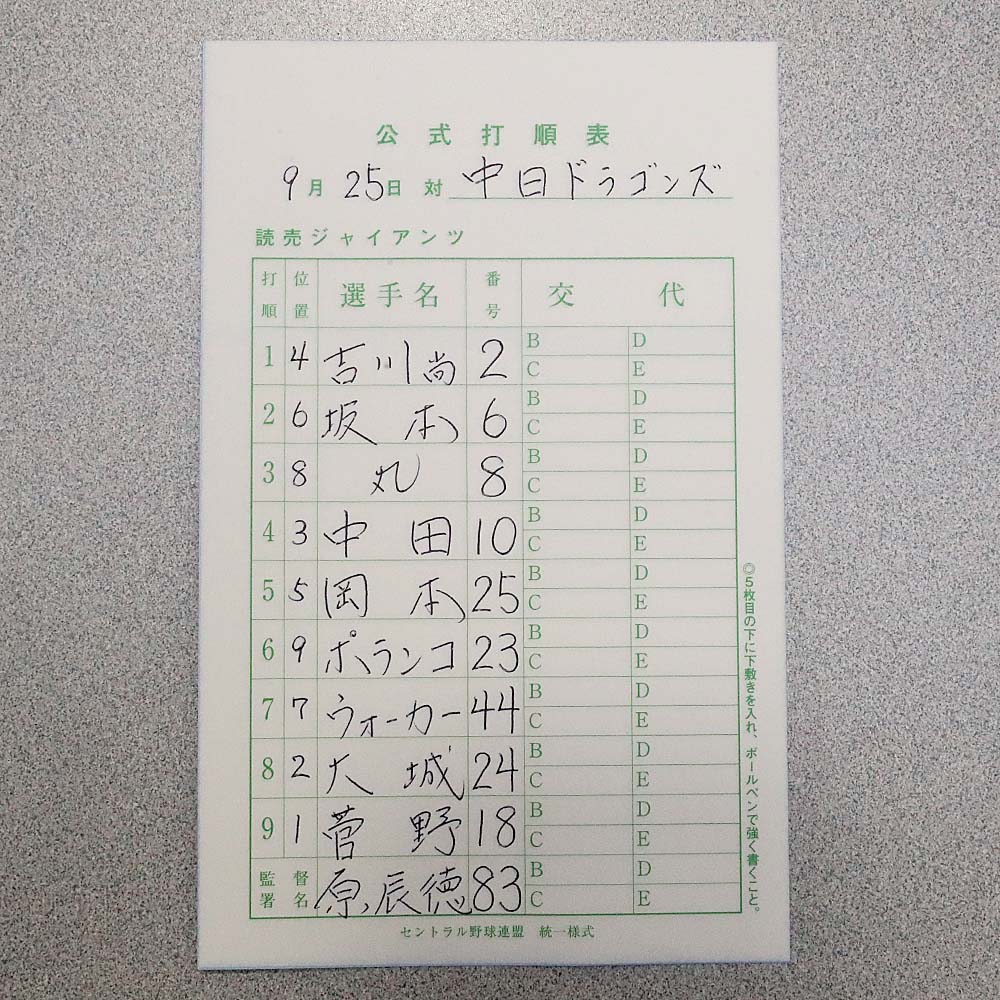 公式打順表
9月25日 対 中日ドラゴンズ
読売ジャイアンツ
打順 位置 選手名 番号 交代
1 4 吉川尚 2 B D
C E
2 6 坂本 6 B D
C E
3 8 丸 8 B D
C E
4 3 中田 10 B D
C E
5 5 岡本 25 B D
C E
6 9 ポランコ 23 B D
C E
7 7 ウォーカー 44 B D
C E
8 2 大城 24 B D
C E
9 1 菅野 18 B D
C E
監督署名 原辰徳 83 B D
C E
セントラル野球連盟 統一様式
◎5枚目の下に下敷きを入れ、ボールペンで強く書くこと。